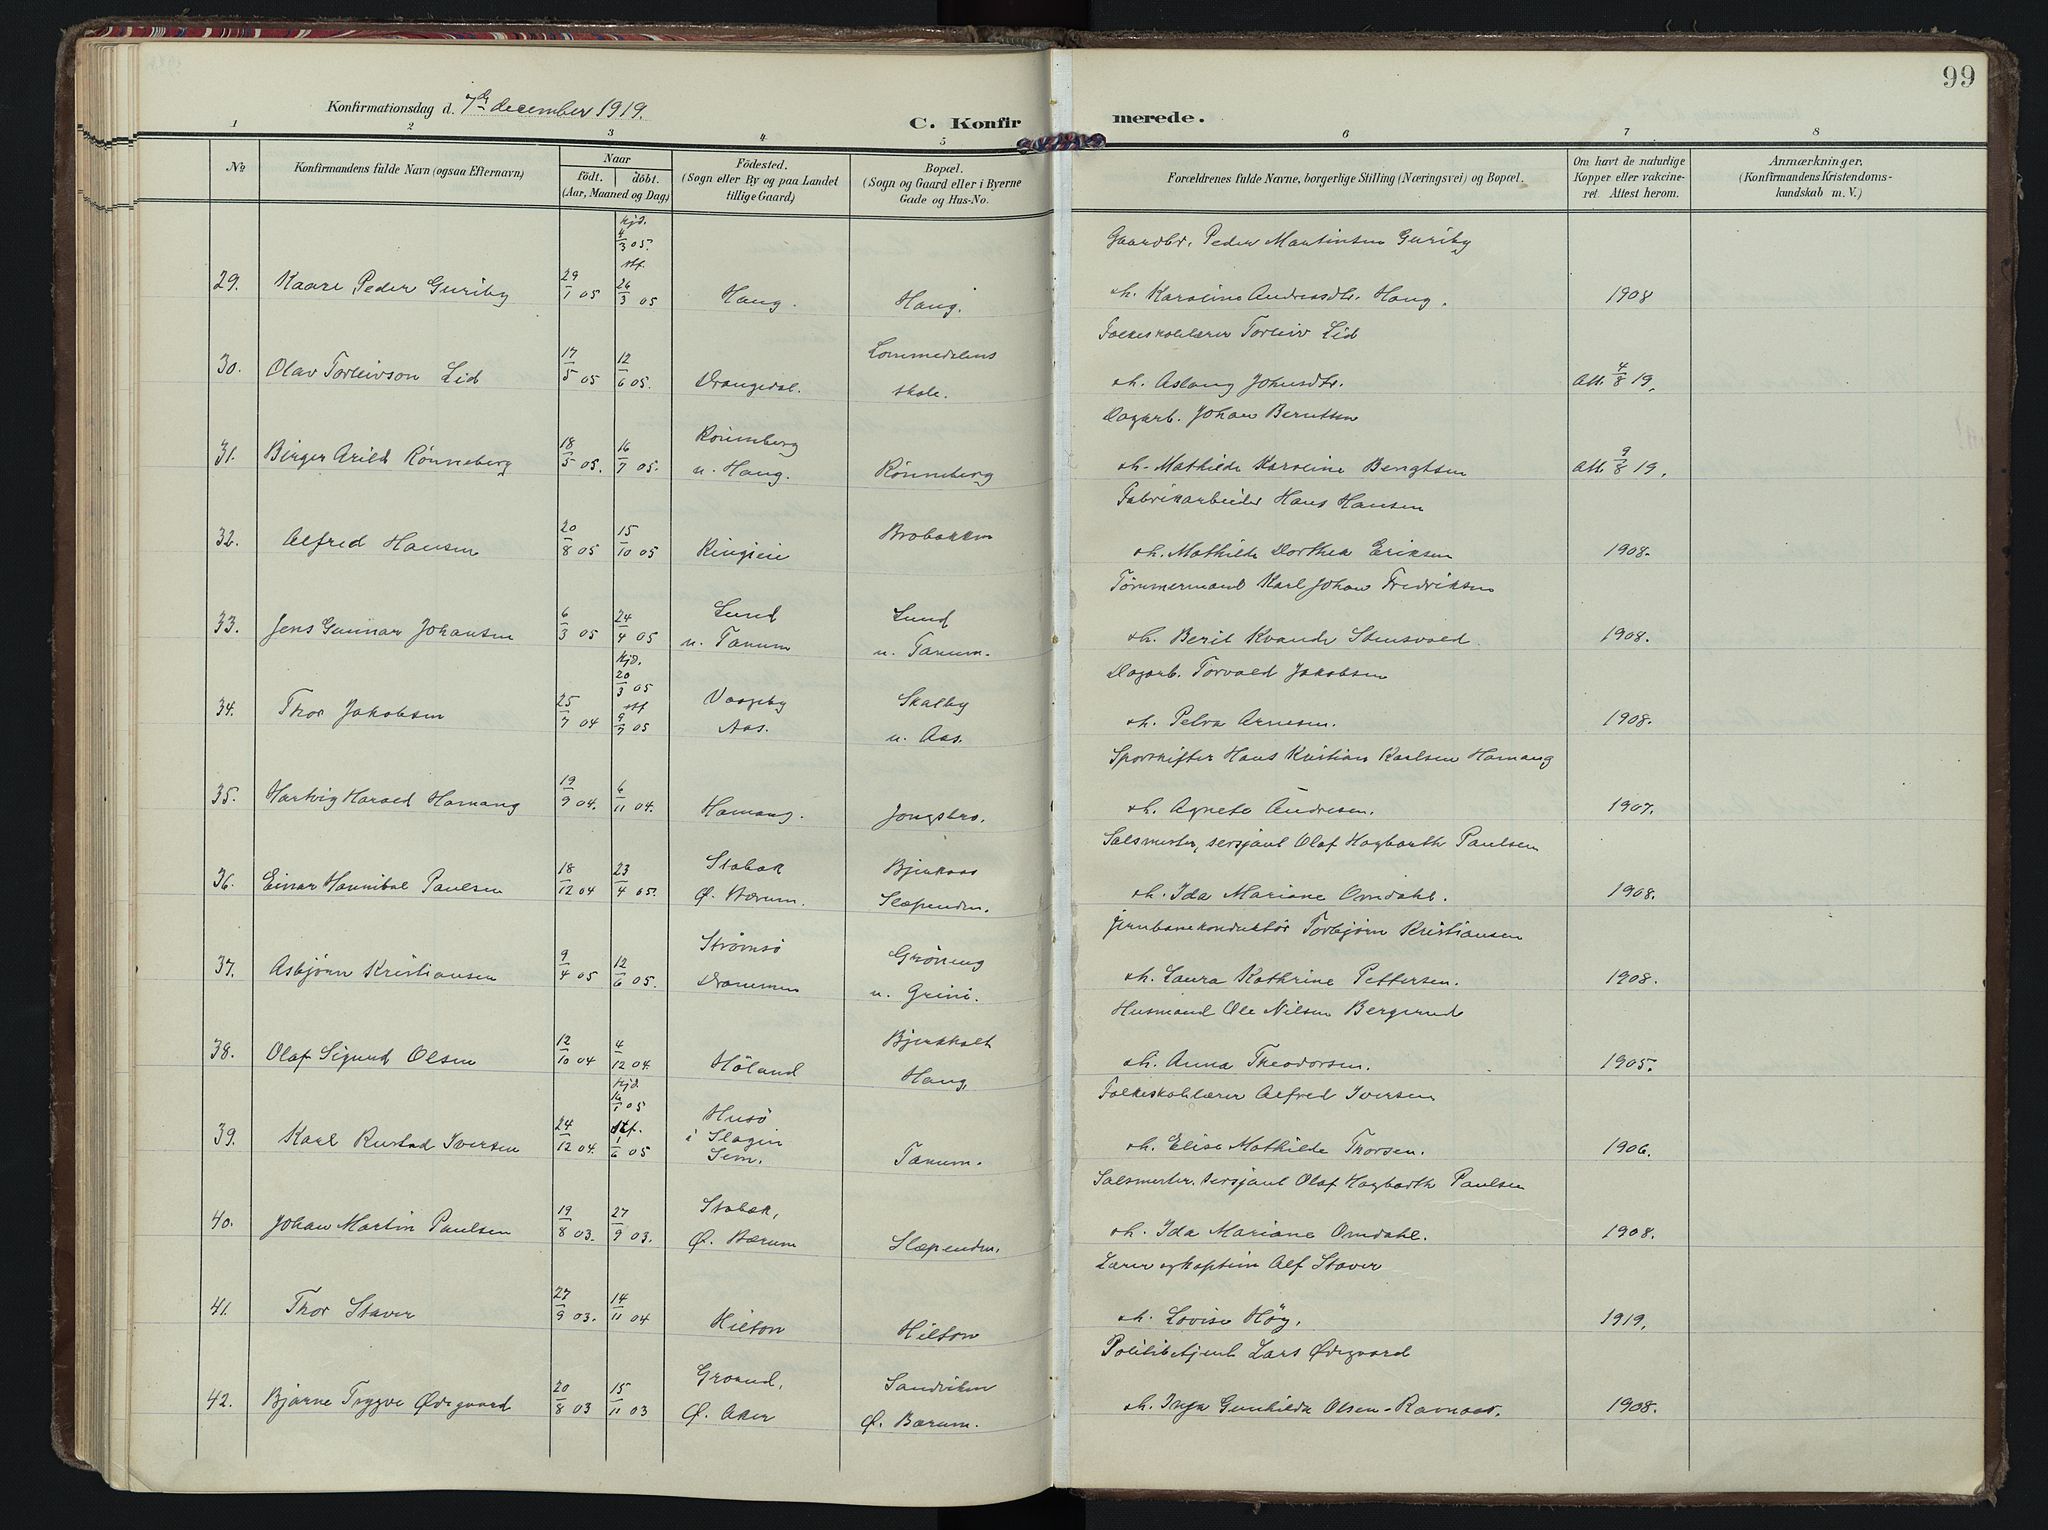 99
Konfirmationsdag d. 7de december 1919.
C. Konfirmerede.
1 2 3 4 5 6 7 8
No. Konfirmandens fulde Navn (ogsaa Efternavn) Naar födt. döbt. (Aar, Maaned og Dag) Födested. (Sogn eller By og paa Landet tillige Gaard) Bopæl. (Sogn og Gaard eller i Byerne Gade og Hus-No. Forældrenes fulde Navne, borgerlige Stilling (Næringsvei) og Bopæl. Om havt de naturlige Kopper eller vakcineret. Attest herom. Anmærkninger. (Konfirmandens Kristendomskundskab m. V.)
hjd. 4/3 05. stf. Gaardbr. Peder Martinsen Guriby
29. Kaare Peder Guriby 29/1 05 26/3 05 Haug. Haug. o.h. Karoline Andreasdtr. Haug. 1908
Lommedalens Folkeskolelærer Torleiv Lid
30. Olav Torleivson Lid 17/5 05 12/6 05. Drangedal. skole. o.h. Aslaug Johnsdtr. Att. 4/8 19.
Rönneberg Dagarb. Johan Berntsen
31. Birger Arild Rönneberg 18/5 05. 16/7 05. u. Haug. Rönneberg o.h. Mathilde Karoline Bengtsen Att. 9/8 19.
Brobakken Fabrikarbeider Hans Hansen
32. Alfred Hansen 20/8 05 15/10 05 Ringieie o.h. Mathilde Dorthea Eriksen 1908.
Lund Lund Tömmermand Karl Johan Fredriksen
33. Jens Gunnar Johansen 6/3 05 24/4 05 u. Tanum u. Tanum. o.h. Berit Kvande Stensvold. 1908.
hjd. 20/3 05 stf Skalby Dagarb. Torvald Jakobsen
34. Thor Jakobsen 25/7 04 9/7 05 Aas. u. Aas. o.h. Petra Arnesen. 1908.
Sporskifter Hans Kristian Karlsen Hamang
35. Hartvig Harald Hamang 19/9 04. 6/11 04. Hamang. Jongsbro. o.h. Agnete Andresen. 1907.
Stabæk Bjerkaas Salsmester, sersjant Olaf Hagbarth Paulsen
36. Einar Hannibal Paulsen 18/12 04 23/4 05. Ø. Bærum. Slæpenden. o.h. Ida Mariane Omdahl. 1908.
Strömsö Gröning Jernbanekonduktör Torbjörn Kristiansen
37. Asbjörn Kristiansen 9/4 05 12/6 05. Drammen u. Grini. o.h. Laura Kathrine Pettersen. 1908.
Bjerkholt Husmand Ole Nilsen Bergerud
38. Olaf Sigurd Olsen 12/10 04 4/12 04 Höland Haug. o.h. Anna Theodorsen. 1905.
hjd. 16/1 05 stf. Husö i Slagen Folkeskolelærer Alfred Iversen
39. Karl Rustad Iversen 24/12 04. 1/6 05 Sem. Tanum. o.h. Elise Mathilde Thorsen. 1906.
Stabæk, Salsmester. sersjant Olaf Hagbarth Paulsen
40. Johan Martin Paulsen 19/8 03. 27/9 03. Ø. Bærum Slæpenden. o.h. Ida Mariane Omdahl. 1908.
Lærer og kaptein Alf Staver
41. Thor Staver 27/9 03. 14/11 04 Hilton Hilton o.h. Lovise Höy. 1919.
Grorud, Sandviken Politibetjent Lars Ödegaard
42. Bjarne Trygve Ödegaard 20/8 03 15/11 03 Ø. Aker Ø. Bærum. o.h. Inga Gunhilda Olsen-Ramaas. 1908.